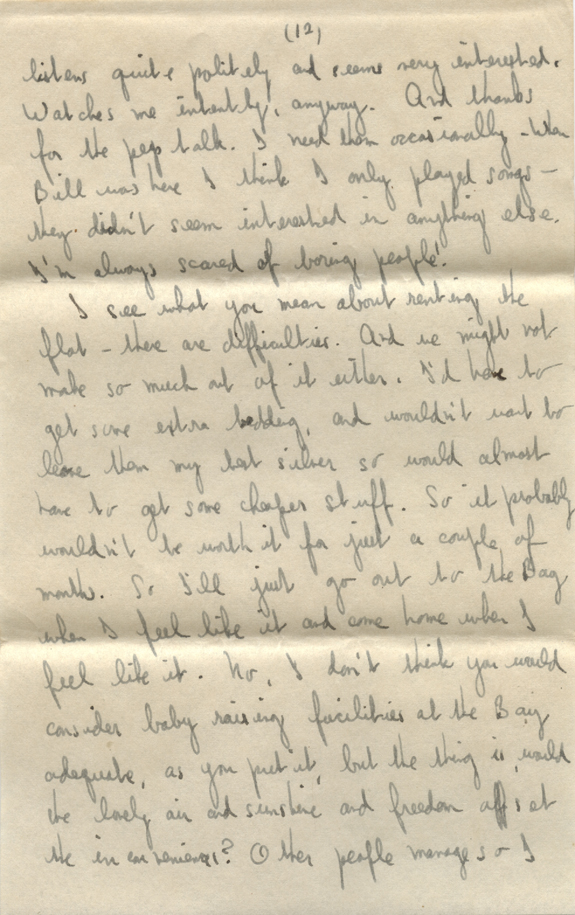 (12)
listens quite politely and seems very interested.
Watches me intently, anyway. And thanks
for the pep talk. I need them occasionally - When
Bill was here I think I only played songs -
they didn't seem interested in anything else.
I'm always scared of boring people!
I see what you mean about renting the
flat - there are difficulties. And we might not
make so much out of it either. I'd have to
get some extra bedding, and wouldn't want to
leave them my best silver so would almost
have to get some cheaper stuff. So it probably
wouldn't be worth it for just a couple of
month. So I'll just go out to the Bay
when I feel like it and come home when I
feel like it. No, I don't think you would
consider baby raising facilities at the Bay
adequate, as you put it, but the thing is, would
the lovely air and sunshine and freedom offset
the inconveniences? Other people manage so I